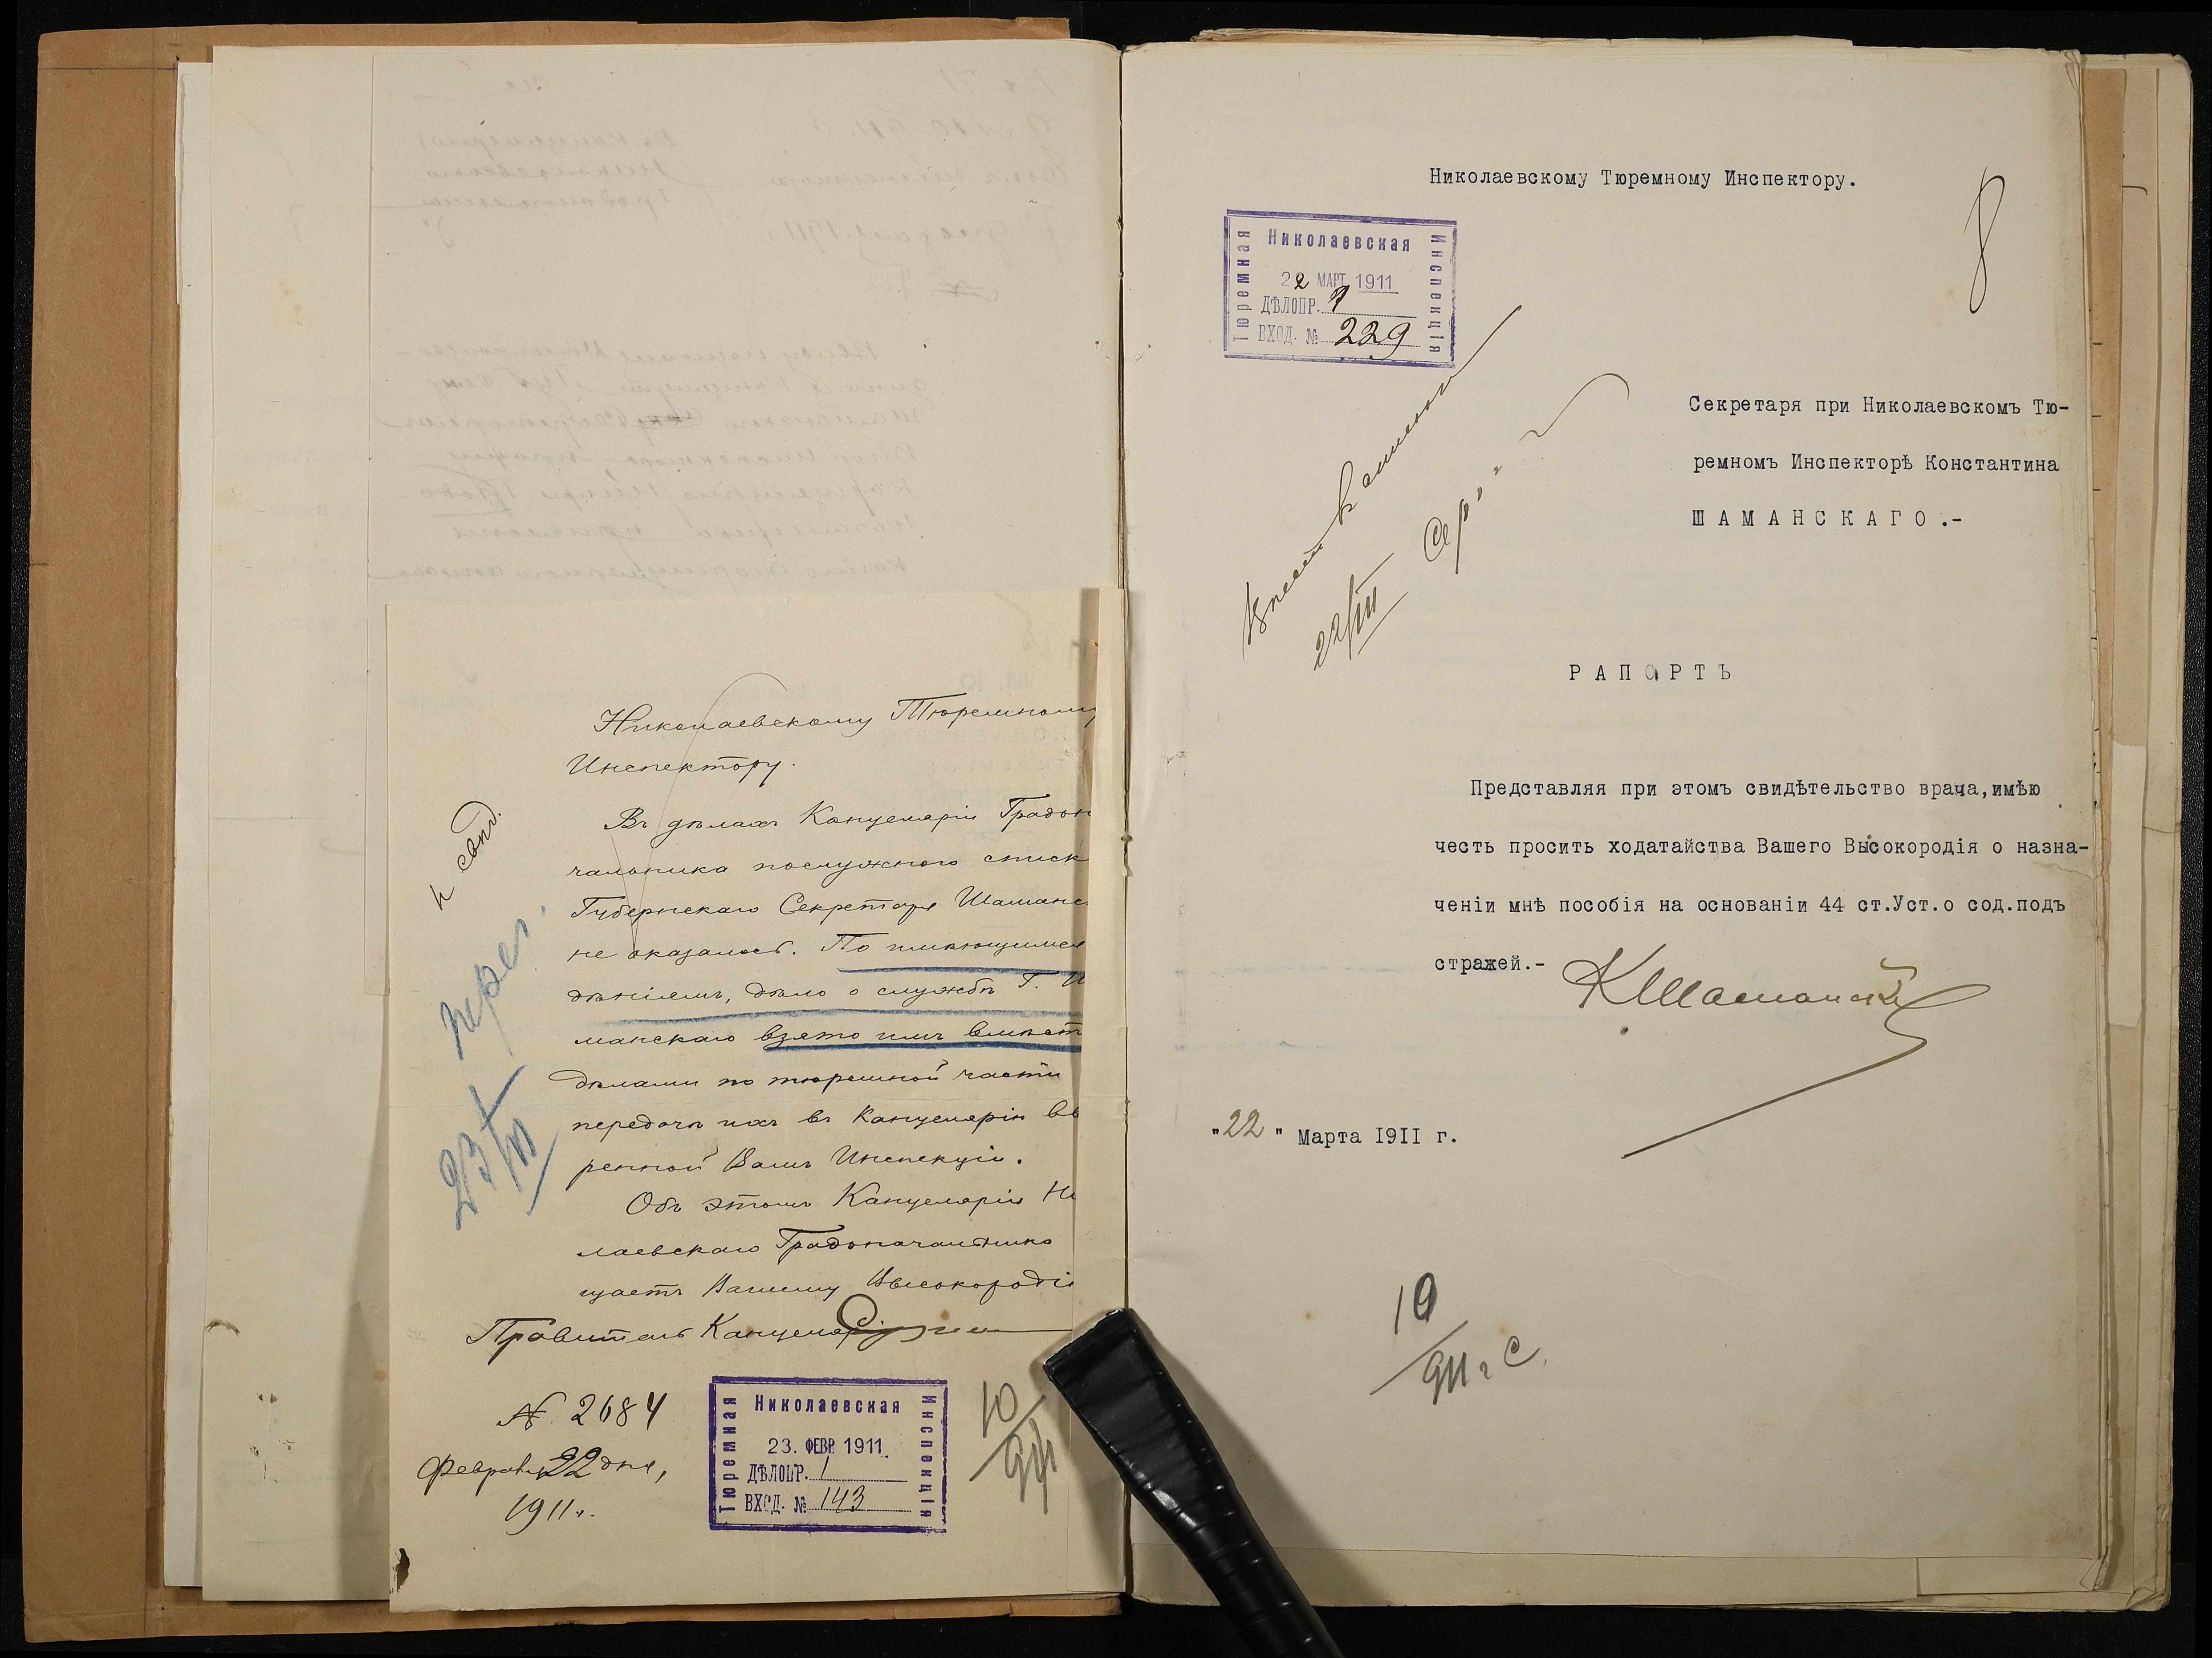 Николаевскому Тюремному
Инспектору.
Въ дѣлахъ Канцеляріи Градон
чальника послужного списк
Губернскаго Секретаря Шаманс
не оказалось. По имѣющимся
дѣніямъ, дѣло о службѣ Г. Ш
манскаго взято имъ вмѣст
дѣлами по тюремной части
передачѣ ихъ въ Канцелярію вв
ренной Вамъ Инспекціи.
Объ этомъ Канцелярія Ни
лаевскаго Градоначальника
щаетъ Вашему Высокородію
Правитель Канцеляріи
№ 2684
Февраля 22 дня,
1911 г.
Николаевская
Тюремная
Инспекція
23. ФЕВР. 1911
ДѢЛОПР. 1
ВХОД. № 143
10
911
23/III
Николаевскому Тюремному Инспектору.
8
Николаевская
Тюремная
Инспекція
22 МАРТ 1911
ДѢЛОПР. 1
ВХОД. № 229
22/III
Секретаря при Николаевскомъ Тю-
ремномъ Инспекторѣ Константина
ШАМАНСКАГО.-
РАПОРТЪ
Представляя при этомъ свидѣтельство врача,имѣю
честь просить ходатайства Вашего Высокородія о назна-
ченіи мнѣ пособія на основаніи 44 ст.Уст.о сод.подъ
стражей.-
КШаманскій
"22" Марта 1911 г.
10
911 г С.